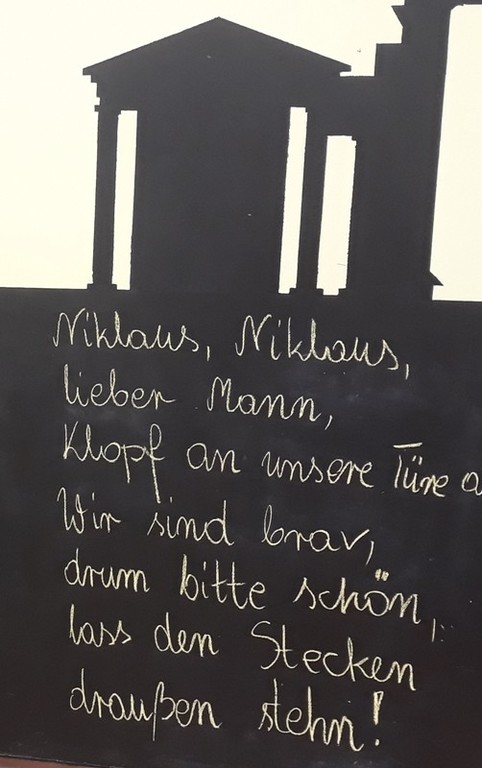 Niklaus, Niklaus,
lieber Mann,
Klopf an unsere Türe a
Wir sind brav,
drum bitte schön,
lass den Stecken
draußen stehn!